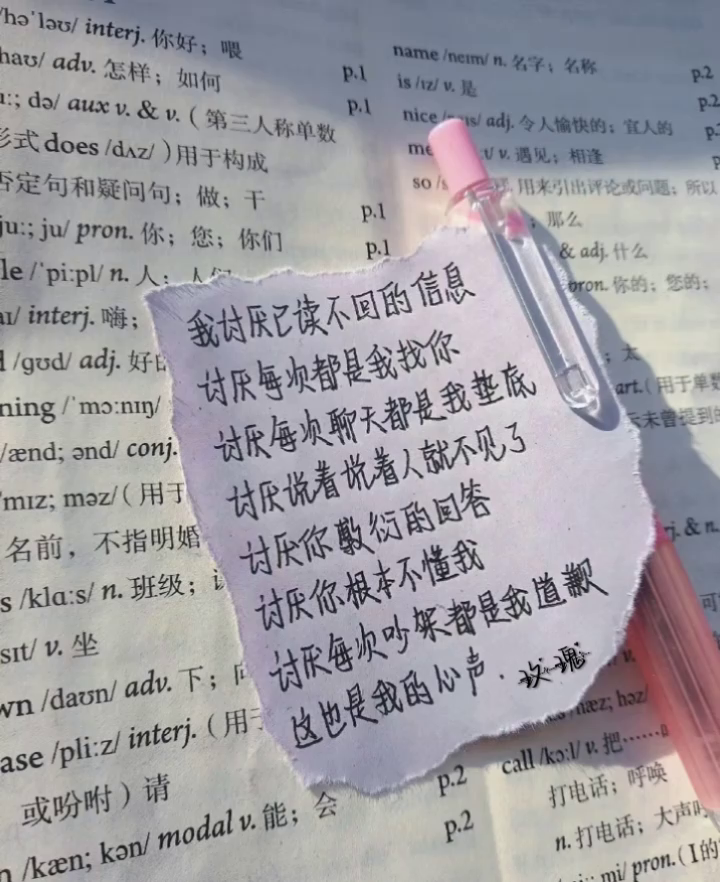 /hə'ləʊ/ interj. 你好；喂
haʊ/ adv. 怎样；如何 p.1
uː; də/ aux v. & v.（第三人称单数 p.1
形式 does /dʌz/）用于构成
否定句和疑问句；做；干 p.1
juː; ju/ pron. 你；您；你们 p.1
le /'piːpl/ n. 人；人们
aɪ/ interj. 嗨；
/ɡʊd/ adj. 好的
ning /'mɔːnɪŋ/
/ænd; ənd/ conj.
mɪz; məz/（用于
名前，不指明婚
s /klɑːs/ n. 班级；
sɪt/ v. 坐
wn /daʊn/ adv. 下；
ase /pliːz/ interj.（用于
或吩咐）请 p.2
n /kæn; kən/ modal v. 能；会 p.2
name /neɪm/ n. 名字；名称 p.2
is /ɪz/ v. 是 p.2
nice adj. 令人愉快的；宜人的
v. 遇见；相逢
so 用来引出评论或问题；所以
；那么
& adj. 什么
pron. 你的；您的；
；太
art.（用于单数
示未曾提到的
我讨厌已读不回的信息
讨厌每次都是我找你
讨厌每次聊天都是我垫底
讨厌说着说着人就不见了
讨厌你敷衍的回答
讨厌你根本不懂我
讨厌每次吵架都是我道歉
这也是我的心声. 玫瑰
& n.
hæz; həz/
call /kɔːl/ v. 把……叫
打电话；呼唤
n. 打电话；大声叫
mi/ pron.（I的